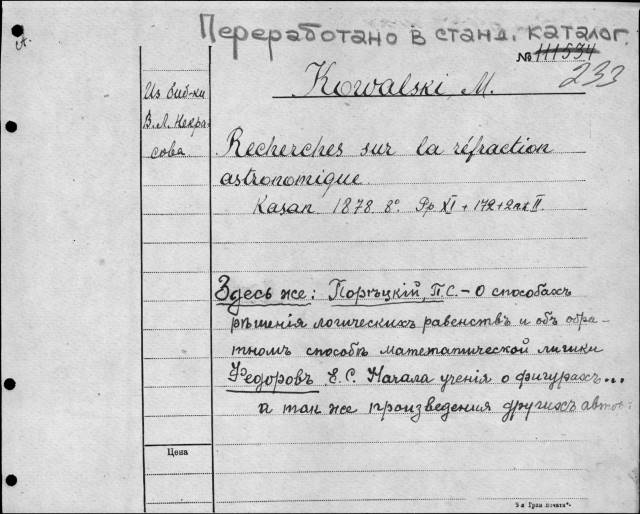 Переработано в станд. каталог.
№ 111534
233
Kowalski M.
Из биб-ки
В. Л. Некра-
сова
Recherches sur la réfraction
astronomique.
Kazan 1878. 8°. Pp XI + 172 + 2 nn II.
Здесь же: Порѣцкій, П.С. – О способахъ
рѣшенія логическихъ равенствъ и объ обра-
тномъ способѣ математической логики
Федоровъ Е.С. Начала ученія о фигурахъ...
а так же произведения другихъ авто
Цена